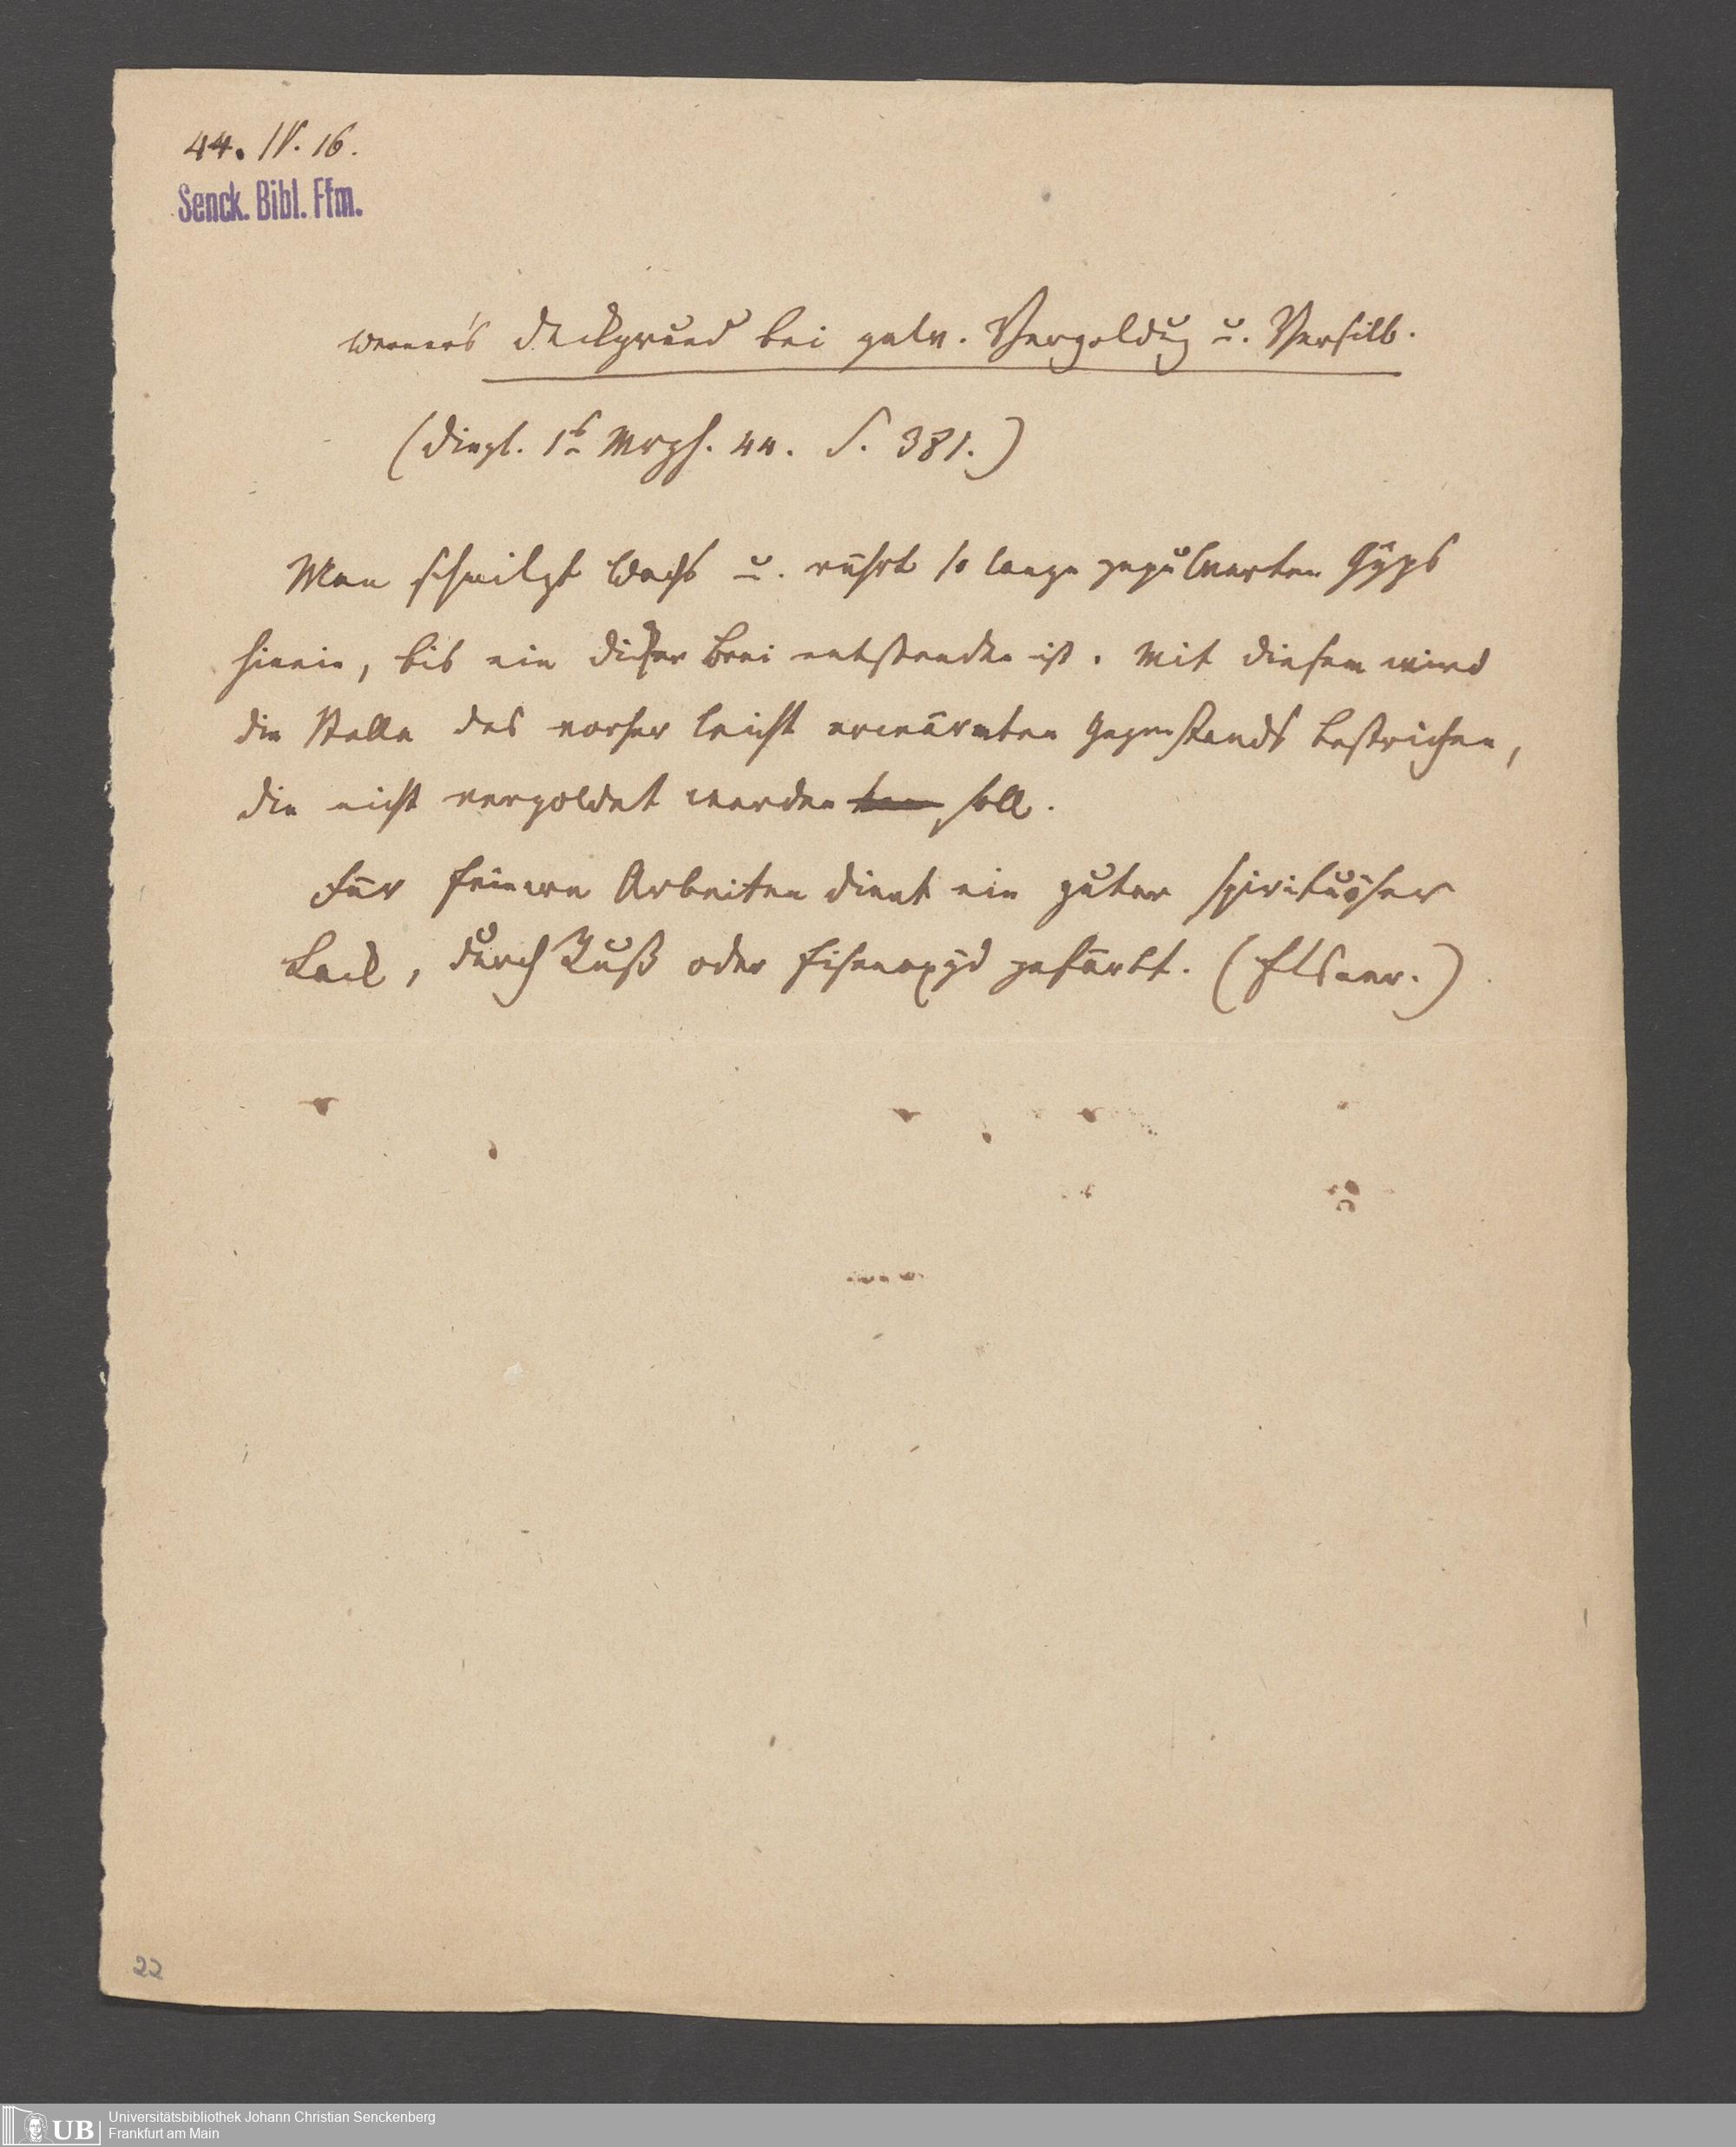 44. IV. 16.
Senck. Bibl. Ffm.
Werner's Deckgrund bei galv. Vergoldug u. Versilb.
(Dingl. 1s Mrzh. 44. S. 381.)
Man schmilzt Wachs u. rührt so lange gepulverten Gyps
hinein, bis ein dicker Brei entstanden ist. Mit diesem wird
die Stelle des vorher leicht erwärmten Gegenstands bestrichen,
die nicht vergoldet werden soll.
Für feinere Arbeiten dient ein guter spirituöser
Lack, durch Ruß oder Eisenoxyd gefärbt. (Elsner.)
22
UB
Universitätsbibliothek Johann Christian Senckenberg
Frankfurt am Main